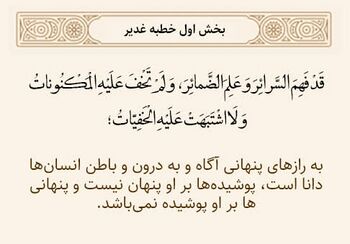 بخش اول خطبه غدیر
قَدْ فَهِمَ السَّرائِرَ وَ عَلِمَ الضَّمائِرَ، وَلَمْ تَخْفَ عَلَیْهِ الْمَکْنُوناتُ
وَلَا اشْتَبَهَتْ عَلَیْهِ الْخَفِیّاتُ؛
به رازهای پنهانی آگاه و به درون و باطن انسان‌ها
دانا است، پوشیده‌ها بر او پنهان نیست و پنهانی
ها بر او پوشیده نمی‌باشد.